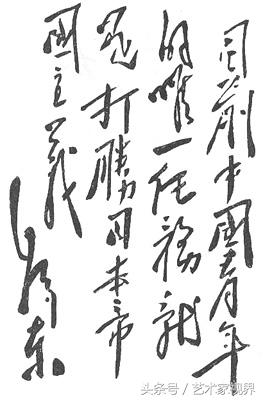 目前中國青年
的唯一任務就
是打勝日本帝
國主義
毛澤東
头条号 / 艺术家视界